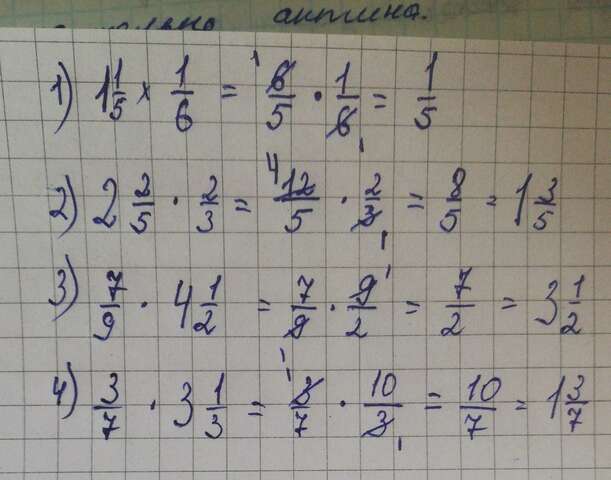 актина.
1) 1 1/5 × 1/6 = 6/5 · 1/6 = 1/5
2) 2 2/5 · 2/3 = 12/5 · 2/3 = 8/5 = 1 3/5
3) 7/9 · 4 1/2 = 7/9 · 9/2 = 7/2 = 3 1/2
4) 3/7 · 3 1/3 = 3/7 · 10/3 = 10/7 = 1 3/7